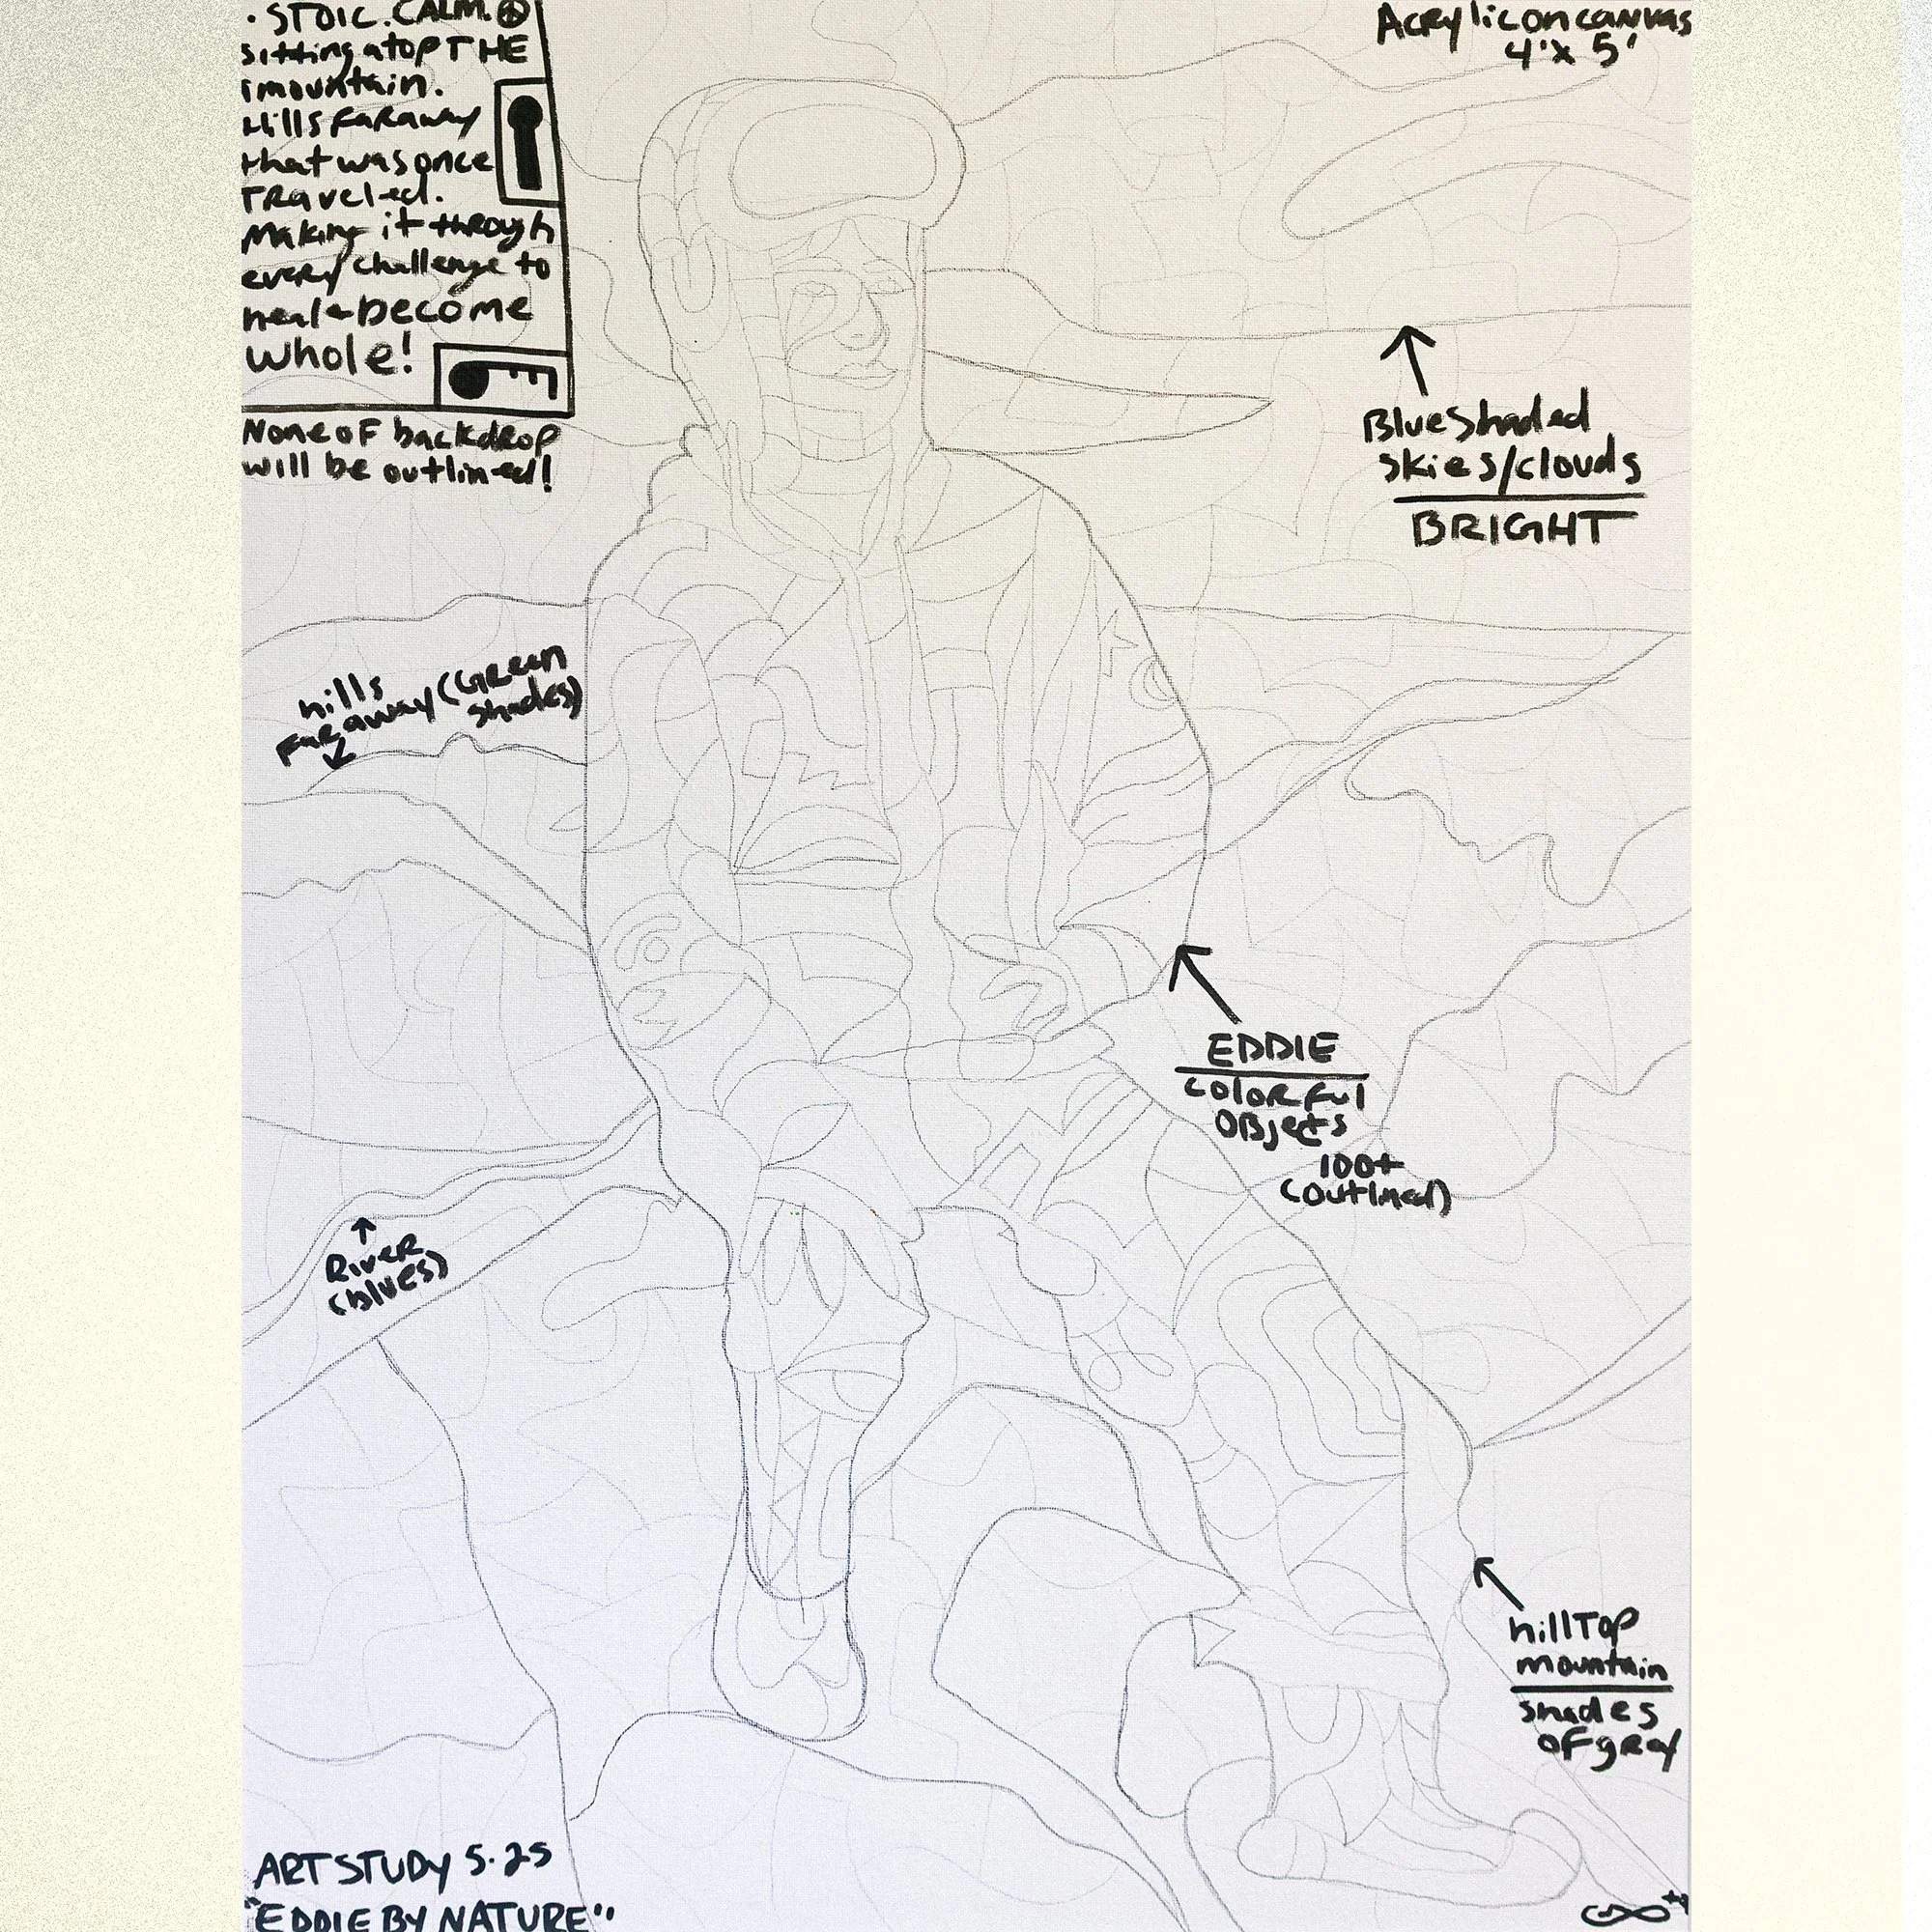 · STOIC. CALM.
sitting atop THE
mountain.
Hills faraway
that was once
TRaveled.
Making it through
every challenge to
heal + become
whole!
None of backdrop
will be outlined!
Acrylic on canvas
4'x 5'
Blue shaded
skies/clouds
BRIGHT
hills
faraway (Green
shades)
EDDIE
colorful
OBjects
100+
(outlined)
River
(blues)
hillTop
mountain
shades
of gray
ART STUDY 5·25
"EDDIE BY NATURE"